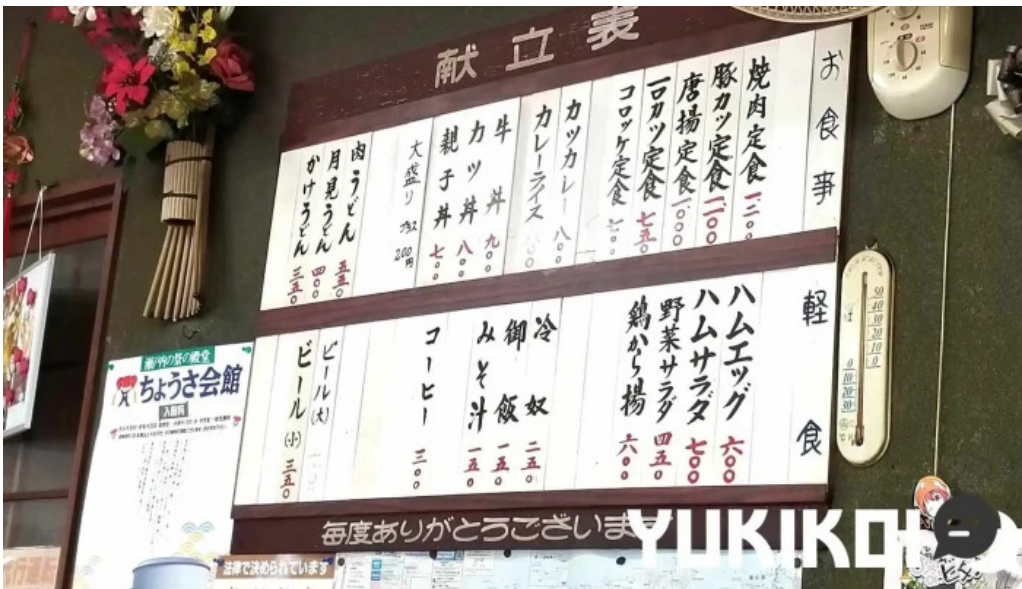 献立表
お食事
焼肉定食 一二〇〇
豚カツ定食 一一〇〇
唐揚定食 一〇〇〇
一口カツ定食 七五〇
コロッケ定食 七〇〇
カツカレー 八〇〇
カレーライス 六〇〇
牛丼 九〇〇
カツ丼 八〇〇
親子丼 七〇〇
大盛り プラス200円
肉うどん 五五〇
月見うどん 四〇〇
かけうどん 三五〇
軽食
ハムエッグ 六〇〇
ハムサラダ 七〇〇
野菜サラダ 四五〇
鶏から揚 六〇〇
冷奴 二五〇
御飯 一五〇
みそ汁 一五〇
コーヒー 三〇〇
ビール(大)
ビール(小) 三五〇
毎度ありがとうございます
瀬戸内の祭の殿堂
ちょうさ会館
入館料
法律で決められています
50
40
30
20
10
0
0
10
20
30
YUKIKO